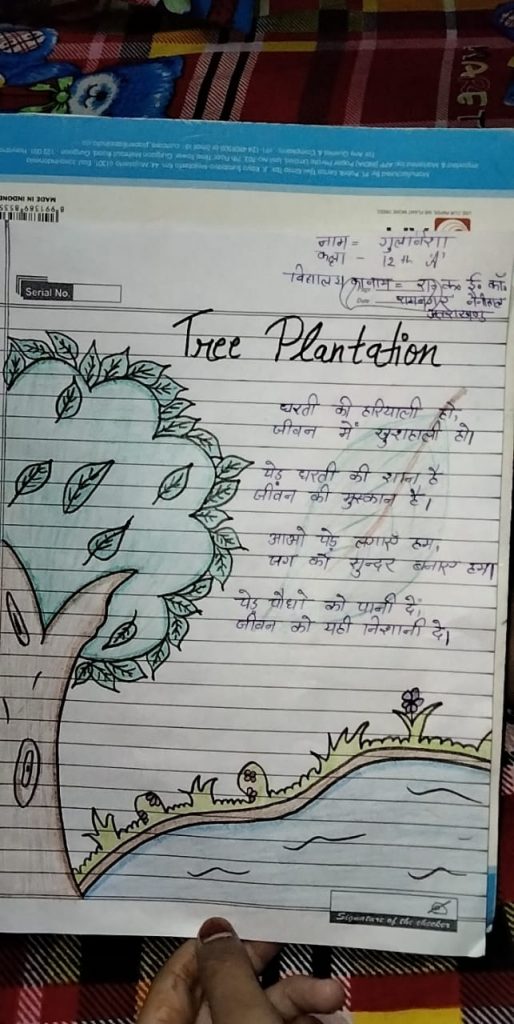 MADE IN INDONE
नाम = गुलाबशा
कक्षा - 12 th 'A'
विद्यालय का नाम = रा० क० ई० कॉ०
रामनगर नैनीताल
उत्तराखण्ड
Serial No.
Date
Tree Plantation
धरती की हरियाली हो,
जीवन में खुशहाली हो।
पेड़ धरती की शान है
जीवन की मुस्कान है।
आओ पेड़ लगाए हम,
जग को सुन्दर बनाए हम।
पेड़ पौधो को पानी दें,
जीवन को यही निशानी दे।
Signature of the checker